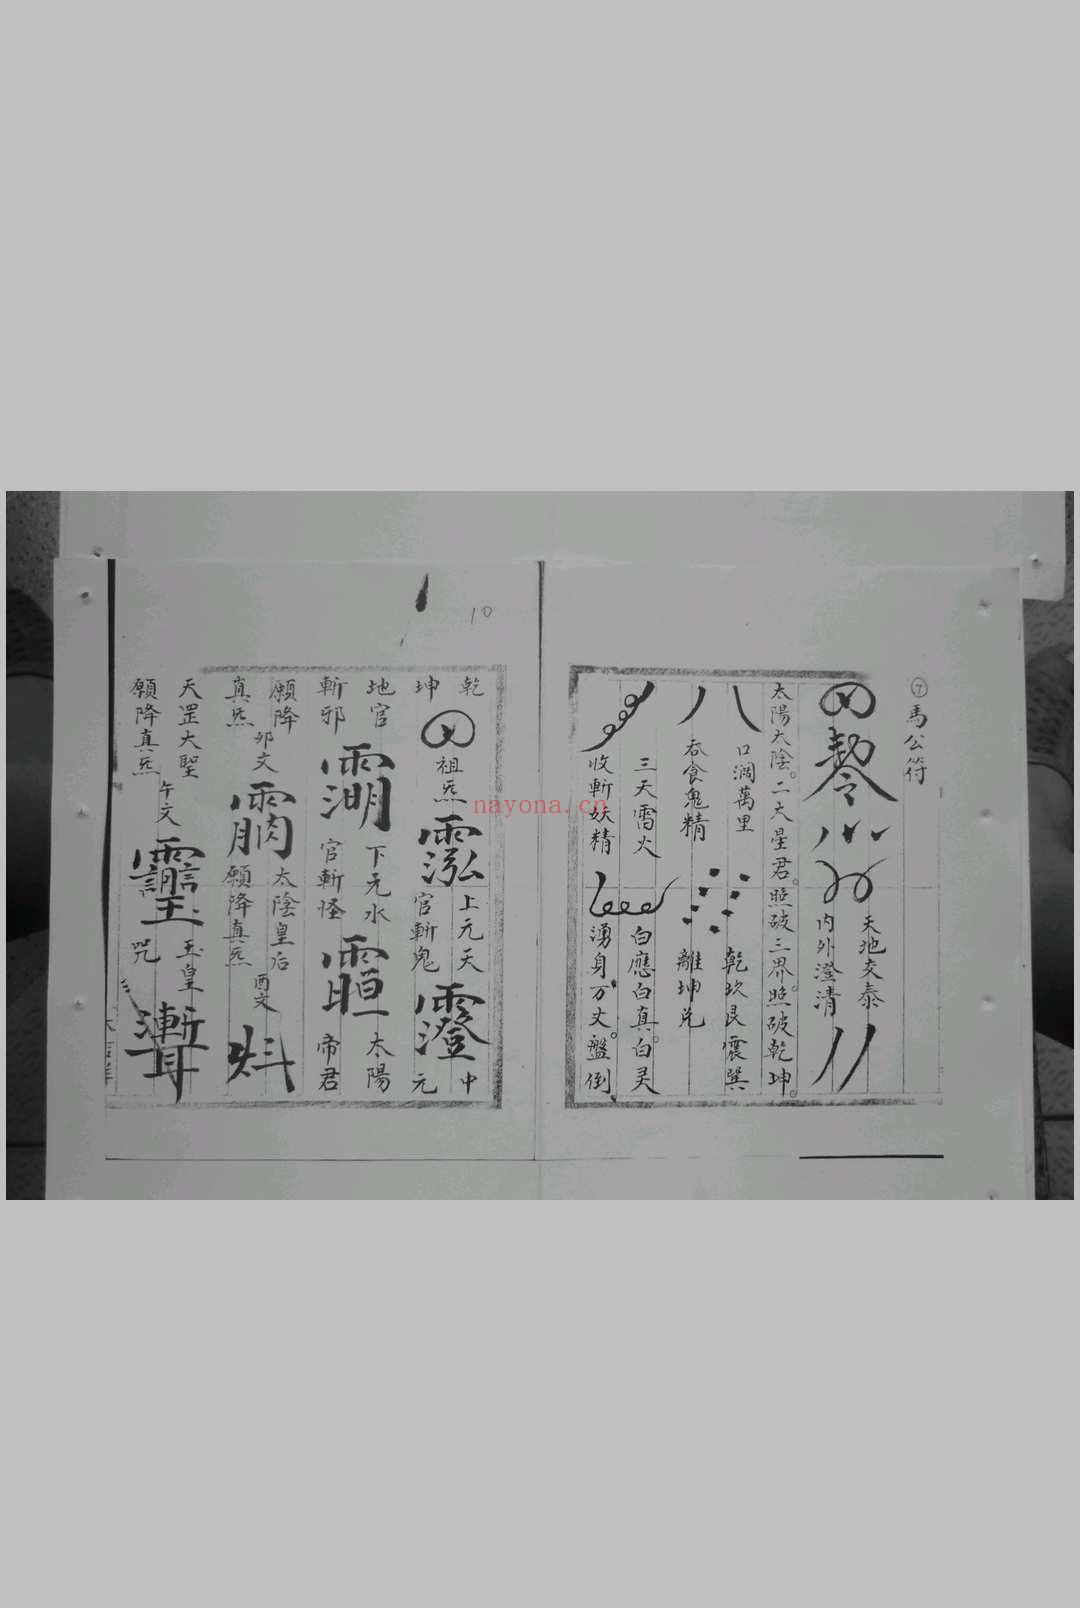 ⑦馬公符
天地交泰
内外澄清
太陽太陰。二大星君。照破三界。照破乾坤。
口濶萬里
吞食鬼精
乾坎艮震巽
離坤兑
三天雷火
收斬妖精
白應白真。白灵
湧身万丈。盤倒
10
乾
坤
祖炁
上元天
官斬鬼
中
元
地官
斬邪
下元水
官斬怪
太陽
帝君
願降
真炁
卯文
太陰皇后
願降真炁
酉文
天罡大聖
願降真炁
午文
玉皇
咒
nayona.cn